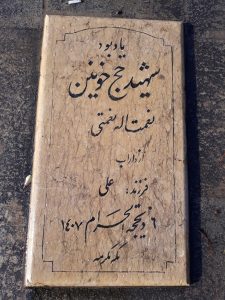 یادبود
شهید حج خونین
نعمت اله نعمتی
از داراب
فرزند: علی
٦ ذیحجة الحرام ١٤٠٧
مکه مکرمه